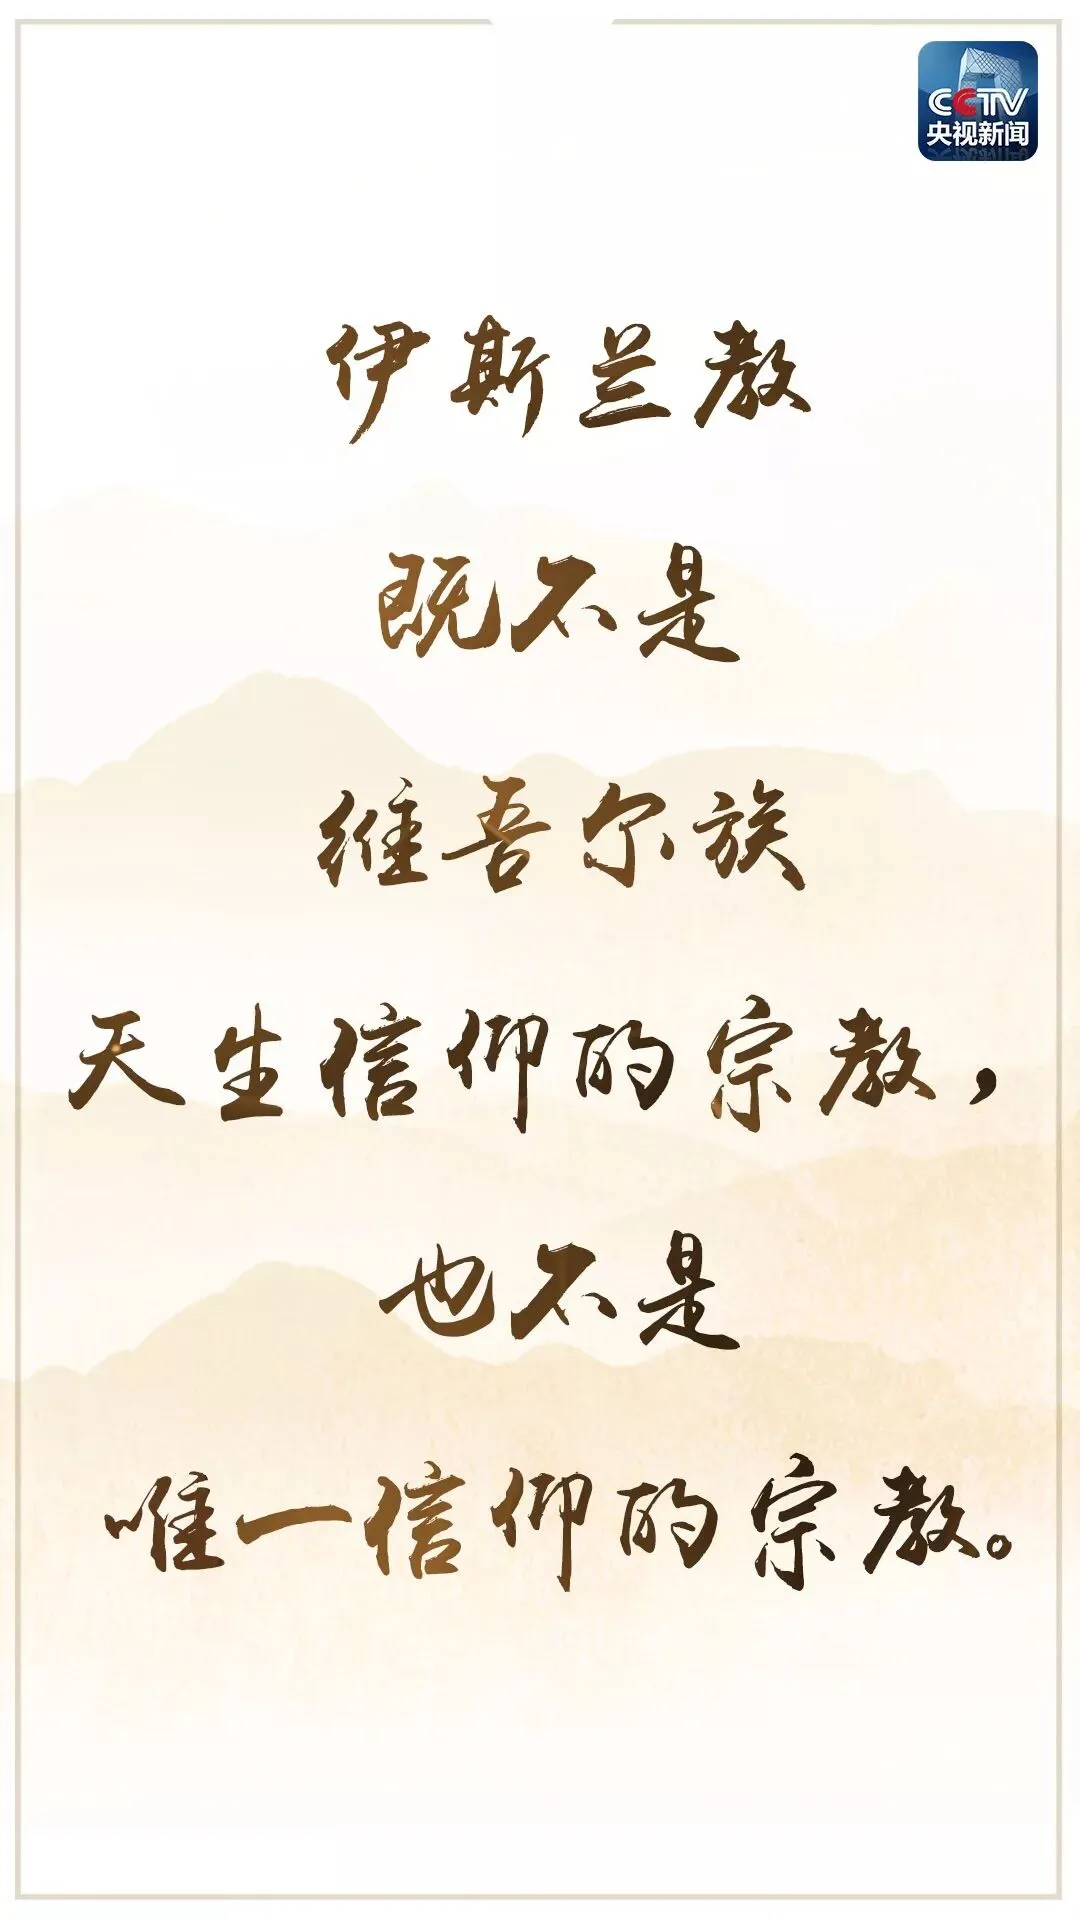 CCTV
央视新闻
伊斯兰教
既不是
维吾尔族
天生信仰的宗教，
也不是
唯一信仰的宗教。